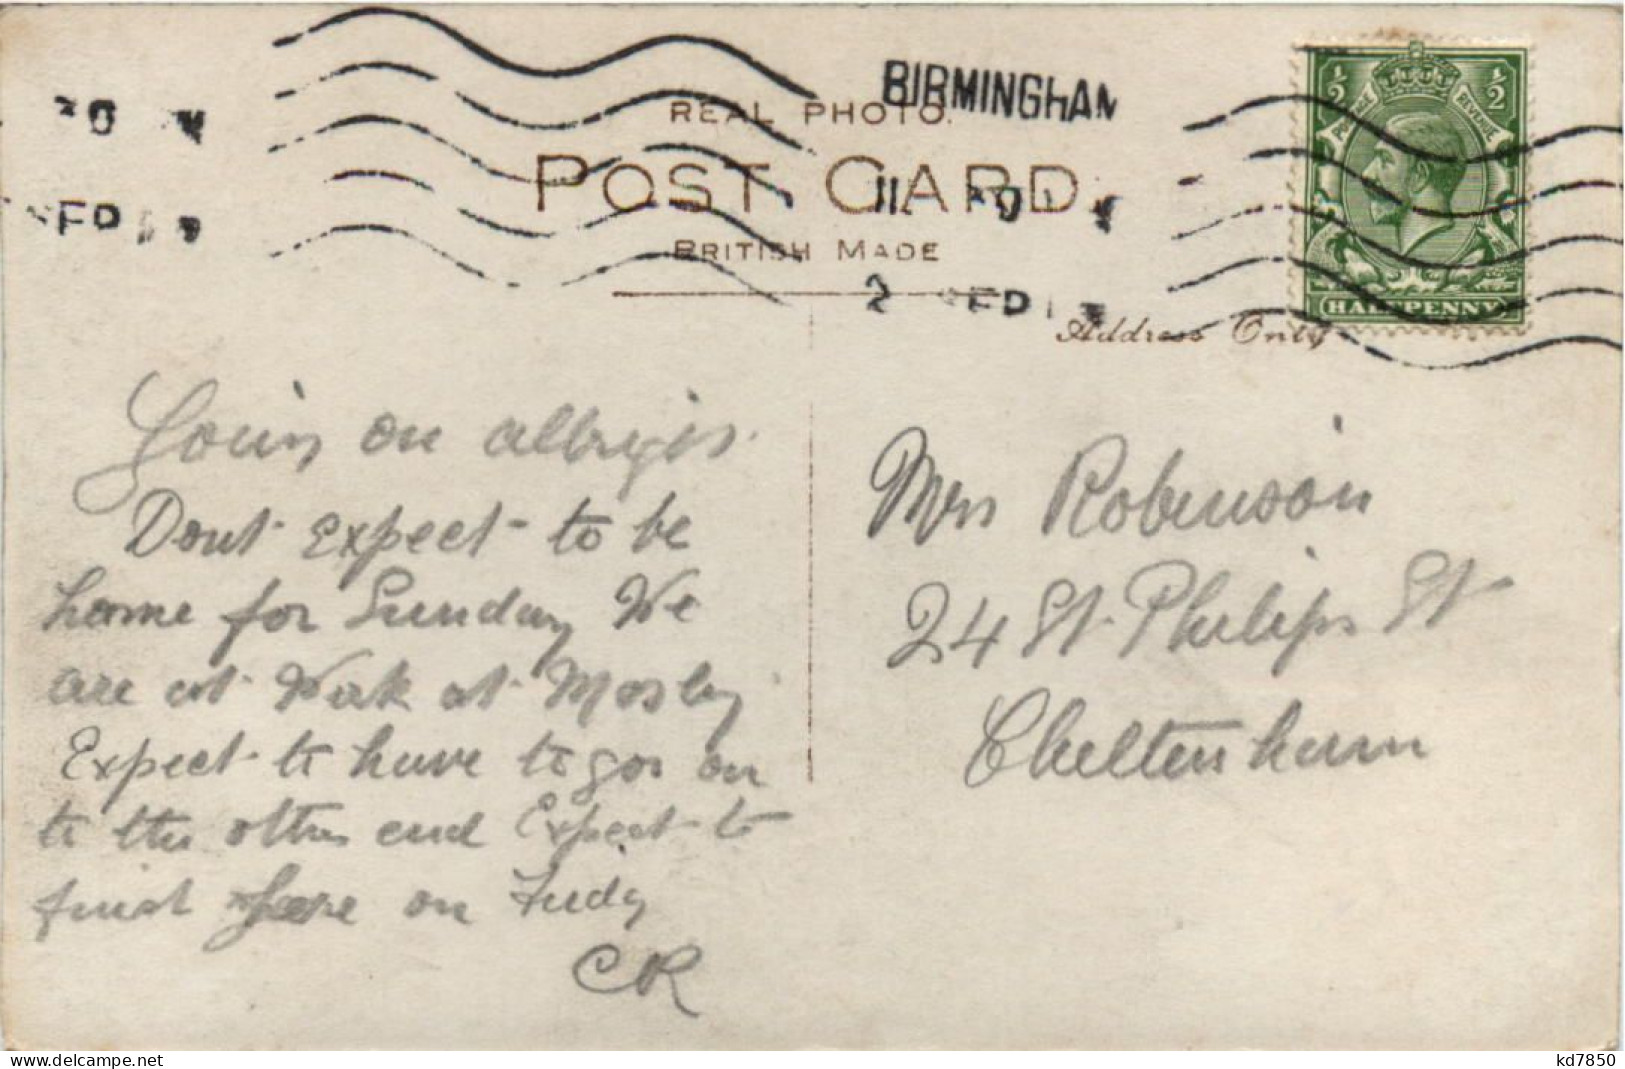 BIRMINGHAM
REAL PHOTO.
POST CARD
BRITISH MADE
½ ½
POSTAGE REVENUE
HALFPENNY
Address Only
Goin on allrigs.
Dont expect to be
home for Sunday We
are at Work at Mosley
Expect to have to go on
to the other end Expect to
finish here on Fridy
CR
Mrs Robinson
24 St. Philips St
Cheltenham
kd7850